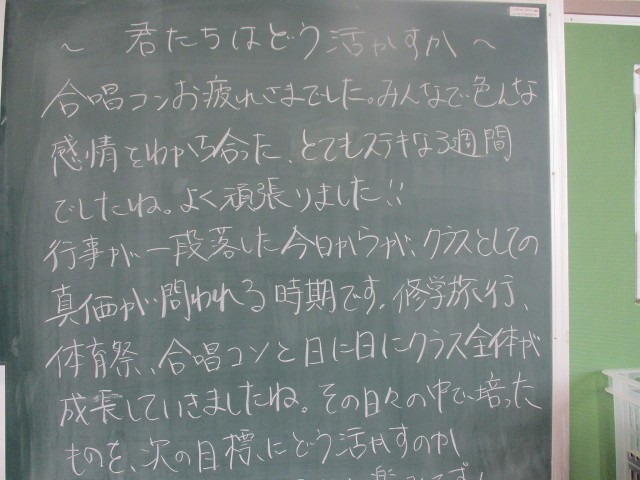 ～ 君たちはどう活かすか ～
合唱コンお疲れさまでした。みんなで色んな
感情をわかち合った、とてもステキな3週間
でしたね。よく頑張りました!!
行事が一段落した今日からが、クラスとしての
真価が問われる時期です。修学旅行、
体育祭、合唱コンと日に日にクラス全体が
成長していきましたね。その日々の中で培った
ものを、次の目標にどう活かすのか